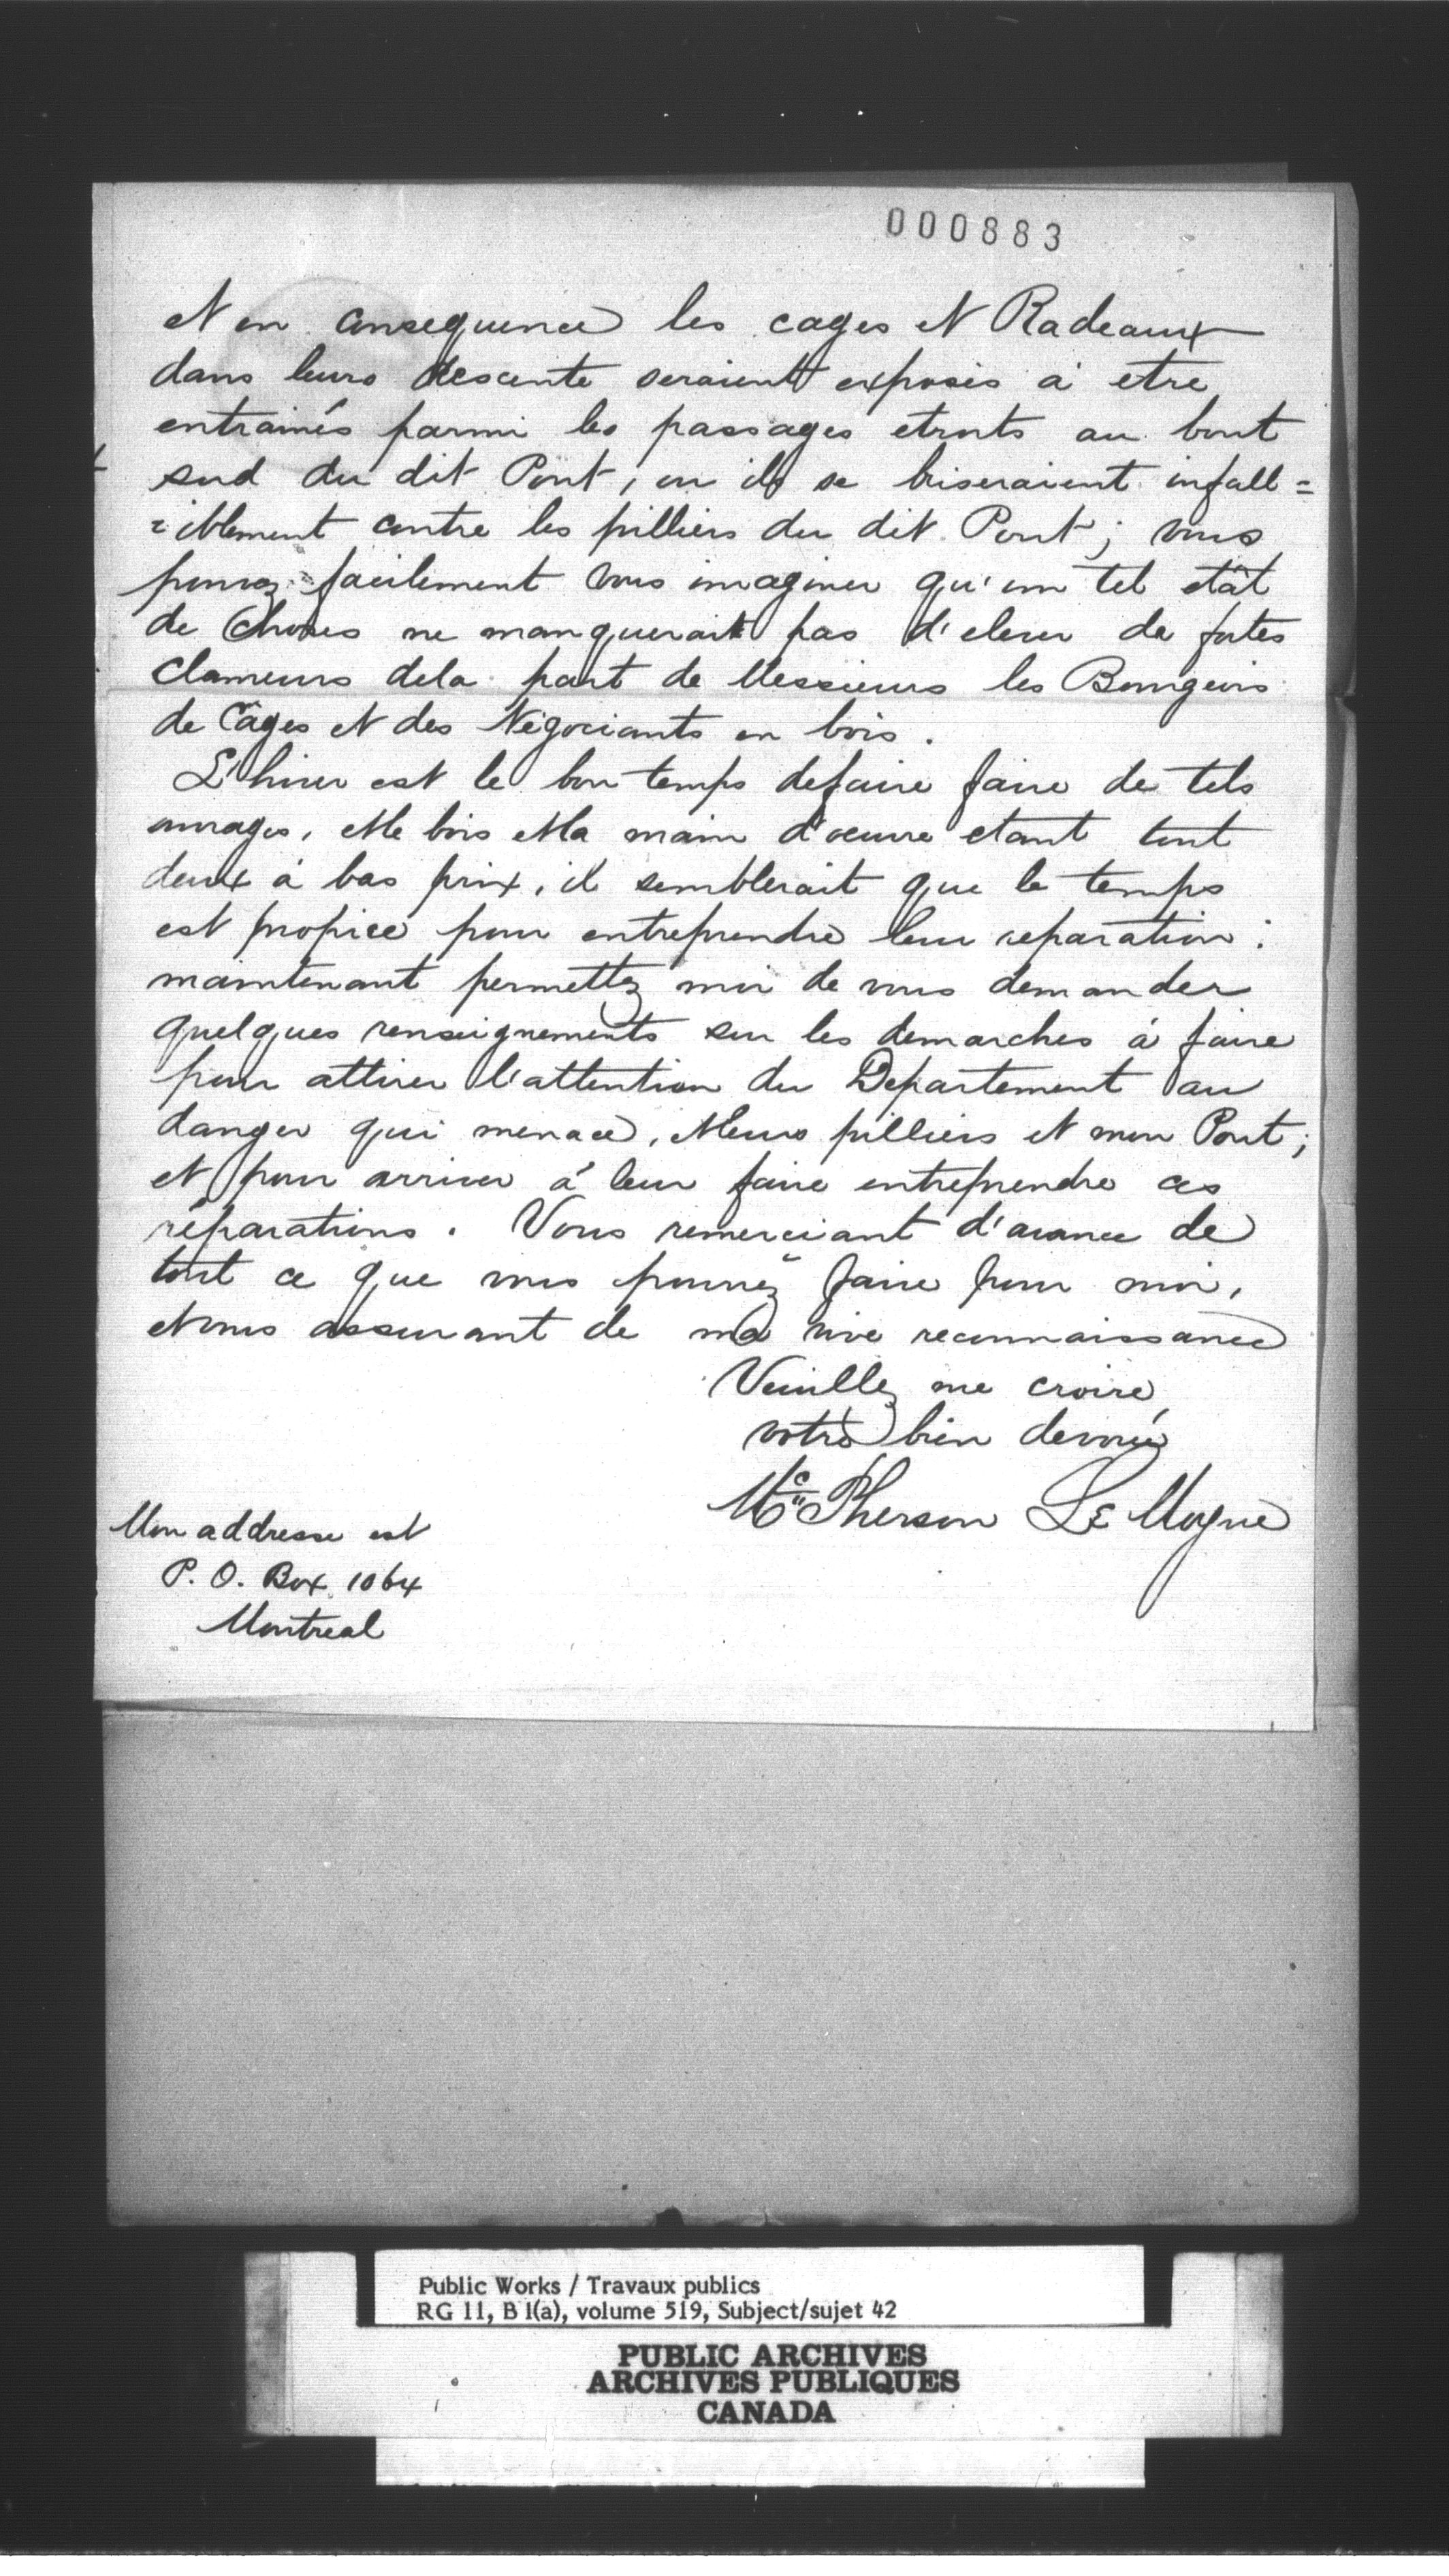 000883
et en consequence les cages et Radeaux
dans leurs descente seraient exposés à etre
entrainés parmi les passages etroits au bout
sud du dit Pont, ou ils se briseraient infall=
=iblement contre les pilliers du dit Pont; vous
pouvez facilement vous imaginer qu'un tel etât
de choses ne manquerait pas d'elever de fortes
clameurs dela part de Messieurs les Bourgeois
de Câges et des Négociants en bois.
L'hiver est le bon temps defaire faire de tels
ouvrages, et le bois et la main d'oeuvre etant tout
deux à bas prix, il semblerait que le temps
est propice pour entreprendre leur reparation:
maintenant permettez moi de vous demander
quelques renseignements sur les demarches à faire
pour attirer l'attention du Departement au
danger qui menace, et leurs pilliers et mon Pont;
et pour arriver à leur faire entreprendre ces
réparations. Vous remerciant d'avance de
tout ce que vous pourrez faire pour moi,
et vous assurant de ma vive reconnaissance
Veuillez me croire,
votre bien devoué
McPherson Le Moyne
Mon addresse est
P. O. Box 1064
Montreal
Public Works / Travaux publics
RG 11, B 1(a), volume 519, Subject/sujet 42
PUBLIC ARCHIVES
ARCHIVES PUBLIQUES
CANADA